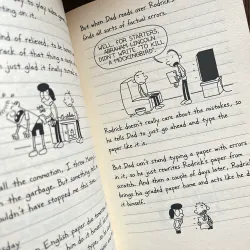 to play video
itting on it.
kind of relieved, to be
rack of that thing a
just glad it finally
all the connection, I threw
the garbage. But something
ouldn't have stopped
English paper
But when Dad reads over Rodrick's
finds all sorts of factual errors.
WELL, FOR STARTERS,
ABRAHAM LINCOLN
DIDN'T WRITE "TO KILL
A MOCKINGBIRD".
Rodrick doesn't really care about the mistakes, so
he tells Dad to just go ahead and type the
paper like it is.
But Dad can't stand typing a paper with errors
it, so he just rewrites Rodrick's paper from
scratch. And then a couple of days later, Rodrick
brings his graded paper home and acts like he d
it himself.